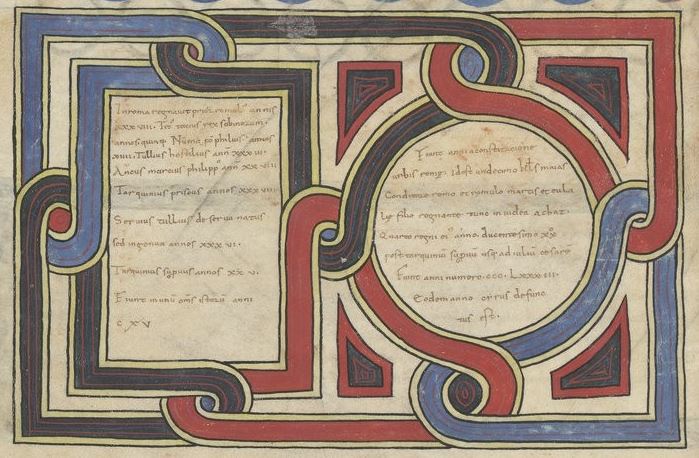 In roma regnavit prius romulus annis
XXXVIII. Tit' tatius rex sabinorum
annos quinq. Numa pōphilius annos
XLIII. Tullius hostilius anñ XXXII.
Ancus marcius philipp' anñ XXXVIII
Tarquinius priscus annos XXXVII.
Servius tullius de serva natus
sed ingenua annos XXXVI.
Tarquinus sup͞bus annos XXV.
Fiunt anni
CXV
Fiunt anni a constitutione
urbis rome Idest undecimo kłs maias
romo et romulo martis et
filio regnante tunc in iudea achaz.
Quarto regni ei' anno. ducentesimo
post tarquiniū sup͞bus usq; ad iuliū cesarē
Fiunt anni numero. CCC. LXXXIII.
Eodem anno cirrus defunc
tus est.